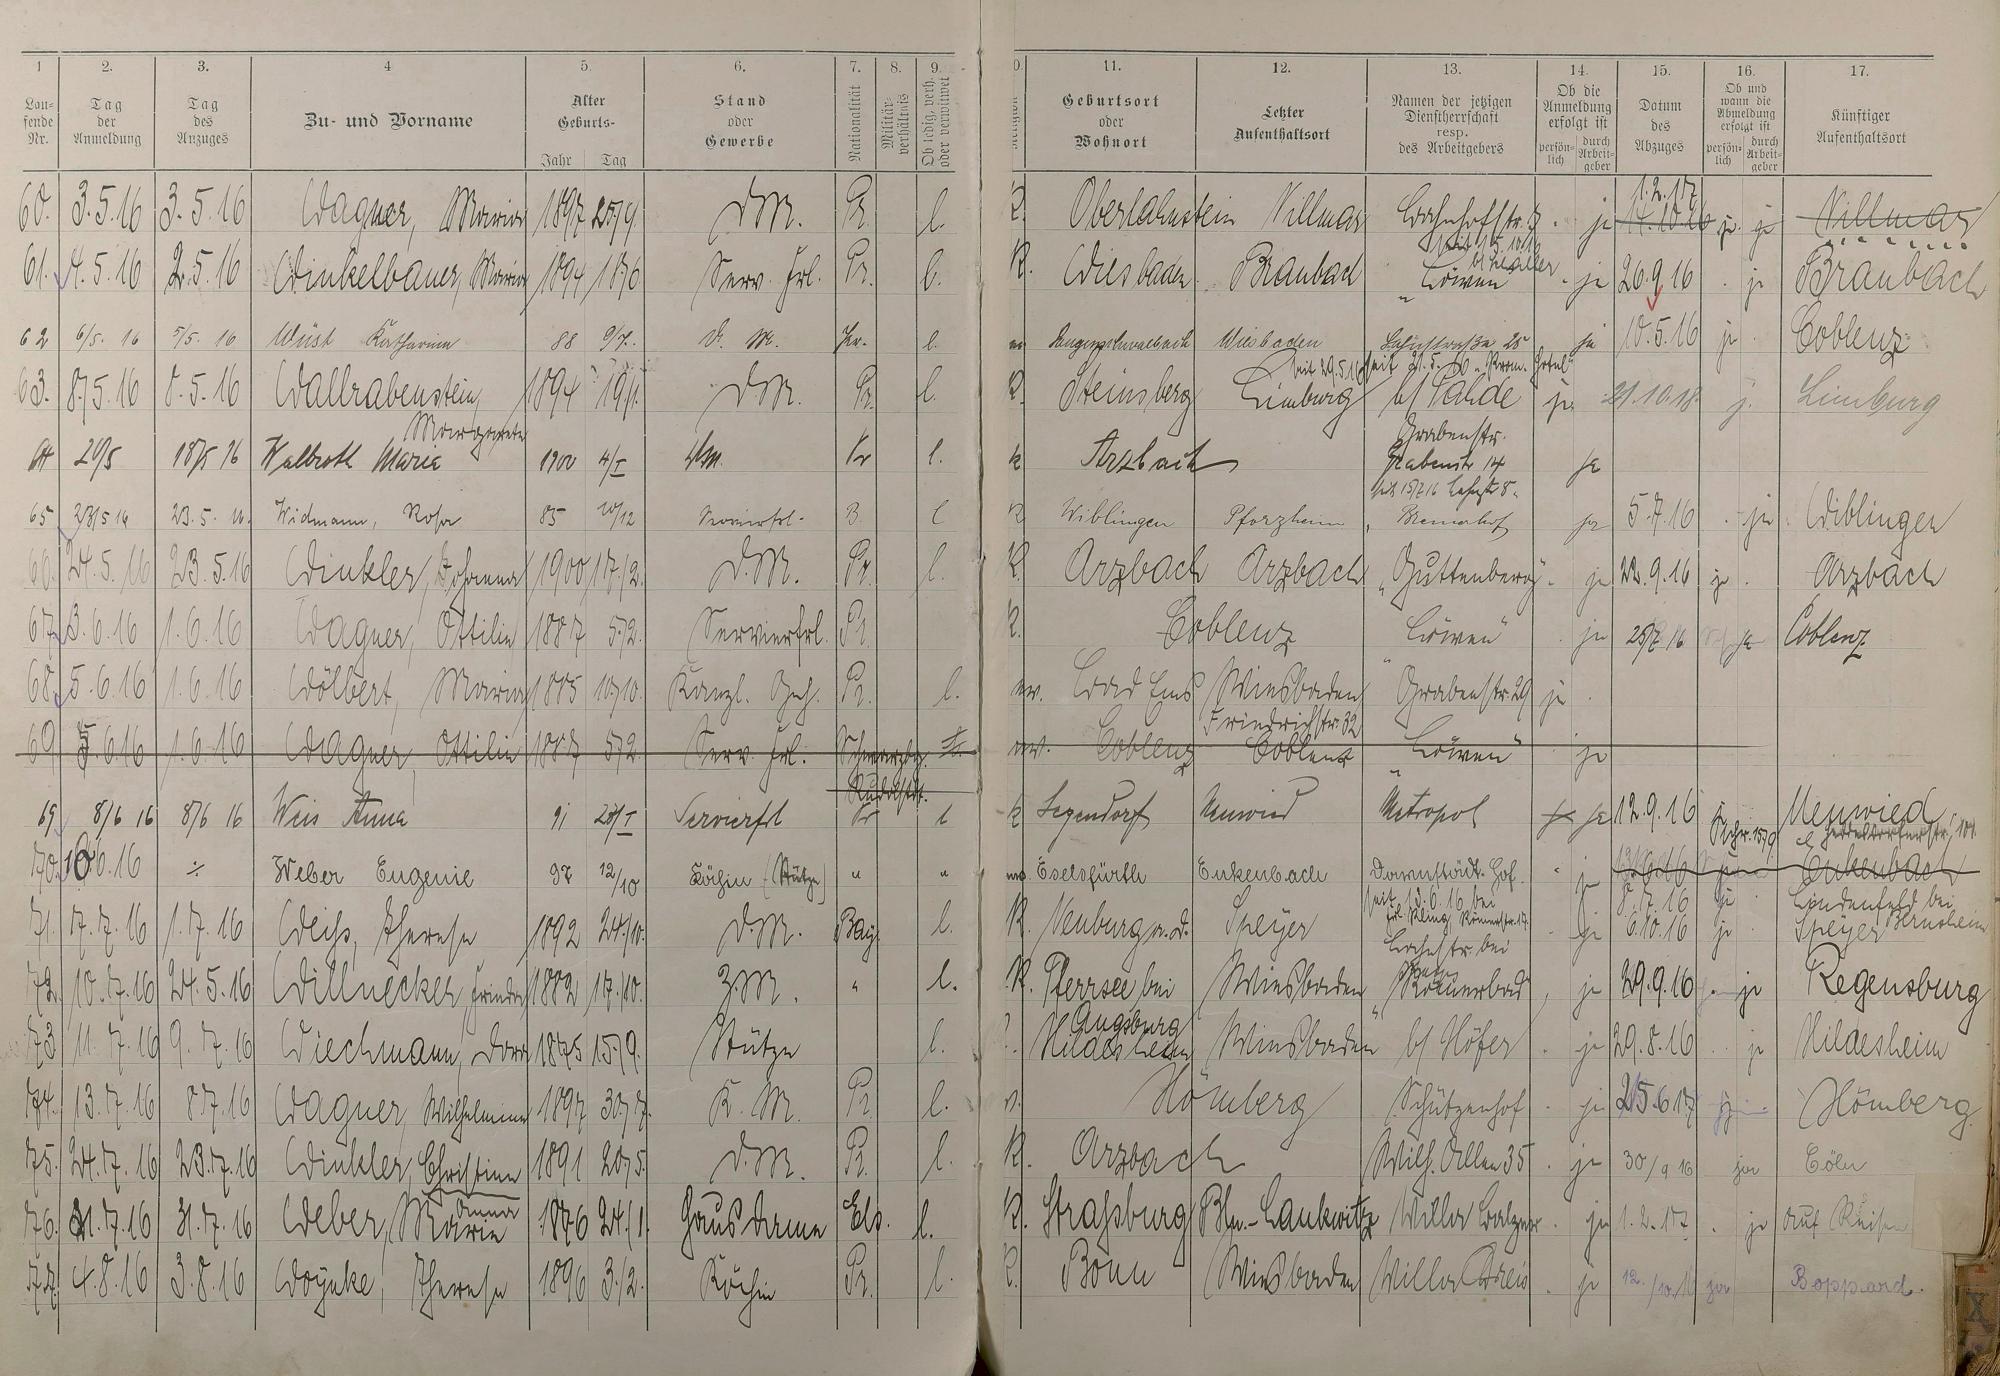 1 2. 3. 4 5. 6. 7. 8. 9. 11. 12. 13. 14. 15. 16. 17.
Lau-fende Nr. Tag der Anmeldung Tag des Anzuges Zu- und Vorname Alter Geburts- Jahr Tag Stand oder Gewerbe Nationalität Militär-verhältnis Ob ledig, verh. oder verwitwet Geburtsort oder Wohnort Letzter Aufenthaltsort Namen der jetzigen Dienstherrschaft resp. des Arbeitgebers Ob die Anmeldung erfolgt ist persön-lich durch Arbeit-geber Datum des Abzuges Ob und wann die Abmeldung erfolgt ist persön-lich durch Arbeit-geber Künftiger Aufenthaltsort
1.2.17
60. 3.5.16 3.5.16 Wagner, Maria 1897 25/9. D.M. Pr. l. K. Oberlahnstein Villmar Bahnhofstr. 7 ja 14.10.16 ja Villmar
seit 15.10.16
61. 4.5.16 2.5.16 Winkelbauer, Maria 1894 18/6 Serv. Frl. Pr. l. K. Wiesbaden Braubach "Löwen" ja 26.9.16 ja Braubach
62 6/5. 16 5/5. 16 Wüst Katharina 88 9/7. D. M. l. Langenschwalbach Wiesbaden Lahnstraße 25 ja 10.5.16 ja Coblenz
63. 8/5.16 8.5.16 Wallrabenstein, 1894 19/1. D.M. Pr. l. K. Steinsberg Limburg ja 21.10.18 Limburg
Margarete Grabenstr.
64 20/5 18/5 16 Walbroth Maria 1900 4/I l. k Arzbach Grabenstr 14 ja
65 23/5 16 23.5.16. Widmann, Rosa 85 10/12 Servierfrl. B. l K Wiblingen Pforzheim Bremerhof ja 5.7.16 ja Wiblingen
66. 24.5.16 23.5.16 Winkler, Johanna 1900 17./2. D.M. Pr. l. K. Arzbach Arzbach "Guttenberg" ja 22.9.16 ja Arzbach
67. 3.6.16 1.6.16 Wagner, Ottilie 1887 5/2. Servierfrl. Pr. K. Coblenz "Löwen" ja 25/7 16 ja Coblenz
68. 5.6.16 1.6.16 Wölbert, Maria 1885 10/10. Kanzl. Geh. Pr. l. ev. Bad Ems Wiesbaden Grabenstr. 29 ja
Friedrichstr. 32
69 5.6.16 1.6.16 Wagner, Ottilie 1887 5/2 Serv. Frl. Schwarzbg. ev. Coblenz Coblenz "Löwen" ja
Rudolstdt.
69 8/6 16 8/6 16 Weis Anna 91 28/I Servierfrl Pr l k Segendorf Neuwied Metropol ja 12.9.16 Neuwied
70. 10.6.16 ./. Weber Eugenie 97 12/10 Köchin (Stütze) " " Eselsfürth Enkenbach Darmstädt. Hof. ja ja Enkenbach
seit 13.6.16 bei 8.7.16 ja Lindenfeld bei Bensheim
71. 7.7.16 1.7.16 Weiß, Therese 1892 24./10. D.M. Bay. l. K. Neuburg a.D. Speyer ja 6.10.16 ja Speyer
Bahnstr. bei
72. 10.7.16 24.5.16 Willnecker, Frieda 1882 17./10. Z.M. " l. K. Pferrsee bei Wiesbaden "Römerbad" ja 29.9.16 ja Regensburg
Augsburg
73 11.7.16 9.7.16 Wiechmann, Dora 1875 15/9. Stütze l. Hildesheim Wiesbaden b/ Höfer ja 29.8.16 ja Hildesheim
74. 13.7.16 8.7.16 Wagner, Wilhelmine 1897 30/7. K. M. Pr. l. Hömberg Schützenhof ja 25.6.17 Hömberg
75. 24.7.16 23.7.16 Winkler, Christine 1891 20/5. D.M. Pr. l. K. Arzbach Wilh. Allee 35 ja 30/9 16 ja Cöln
Anna
76. 31.7.16 31.7.16 Weber, Marie 1876 24./1. Hausdame Els. l. K. Straßburg Bln.-Lankwitz Villa Balzer ja 1.2.17 ja auf Reisen
77. 4.8.16 3.8.16 Woyke, Therese 1896 3./2. Köchin Pr. l. K. Bonn Wiesbaden Villa ja 12./10.16 ja Boppard.